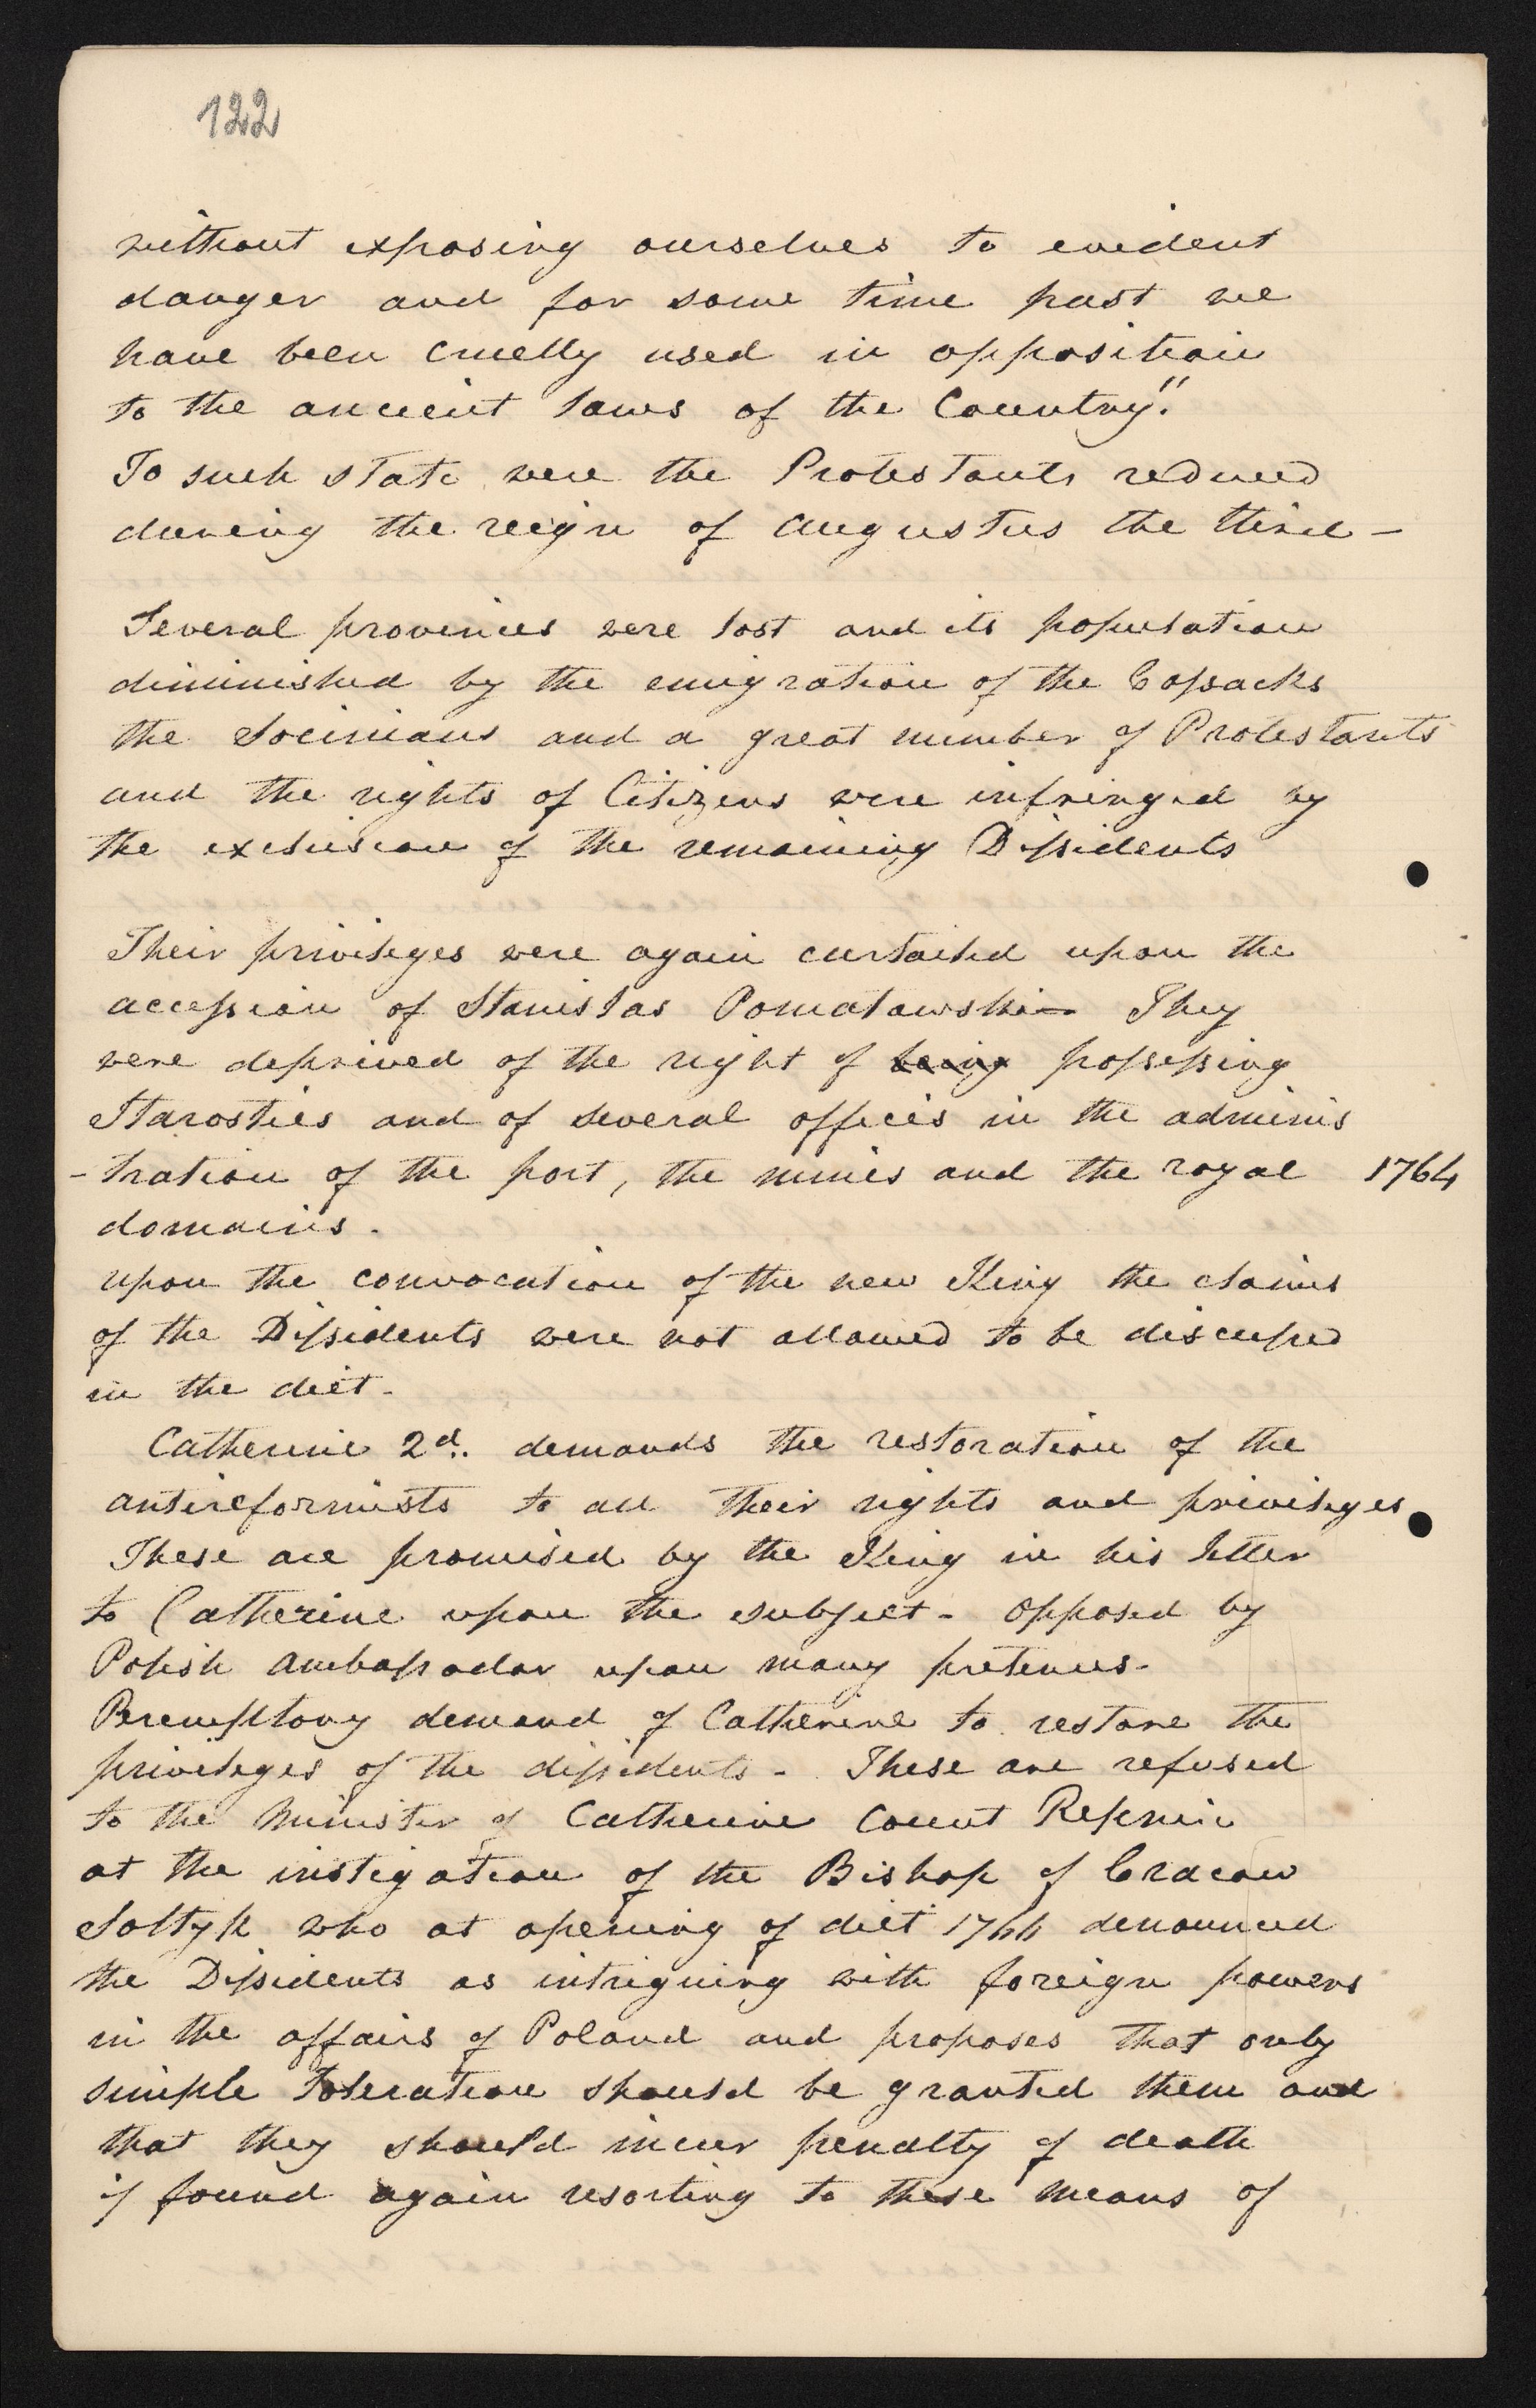 122
without exposing ourselves to evident
danger and for some time past we
have been cruelly used in opposition
to the ancient laws of the Country."
To such state were the Protestants reduced
during the reign of Augustus the third -
Several provinces were lost and its population
diminished by the emigration of the Cossacks
the Socinians and a great number of Protestants
and the rights of Citizens were infringed by
the exclusion of the remaining Dissidents
Their privileges were again curtailed upon the
accession of Stanislas Poniatowski - They
were deprived of the right of being possessing
Starosties and of several offices in the adminis
-tration of the port, the mines and the royal 1764
domains.
upon the convocation of the new King the claims
of the Dissidents were not allowed to be discussed
in the diet -
Catherine 2d. demands the restoration of the
antireformists to all their rights and privileges
These are promised by the King in his letter
to Catherine upon the subject - Opposed by
Polish Ambassador upon many pretences -
Peremptory demand of Catherine to restore the
privileges of the dissidents - These are refused
to the Minister of Catherine Count Repnin
at the instigation of the Bishop of Cracow
Soltyk who at opening of diet 1766 denounced
the Dissidents as intriguing with foreign powers
in the affairs of Poland and proposes that only
simple Toleration should be granted them and
that they should incur penalty of death
if found again resorting to these means of